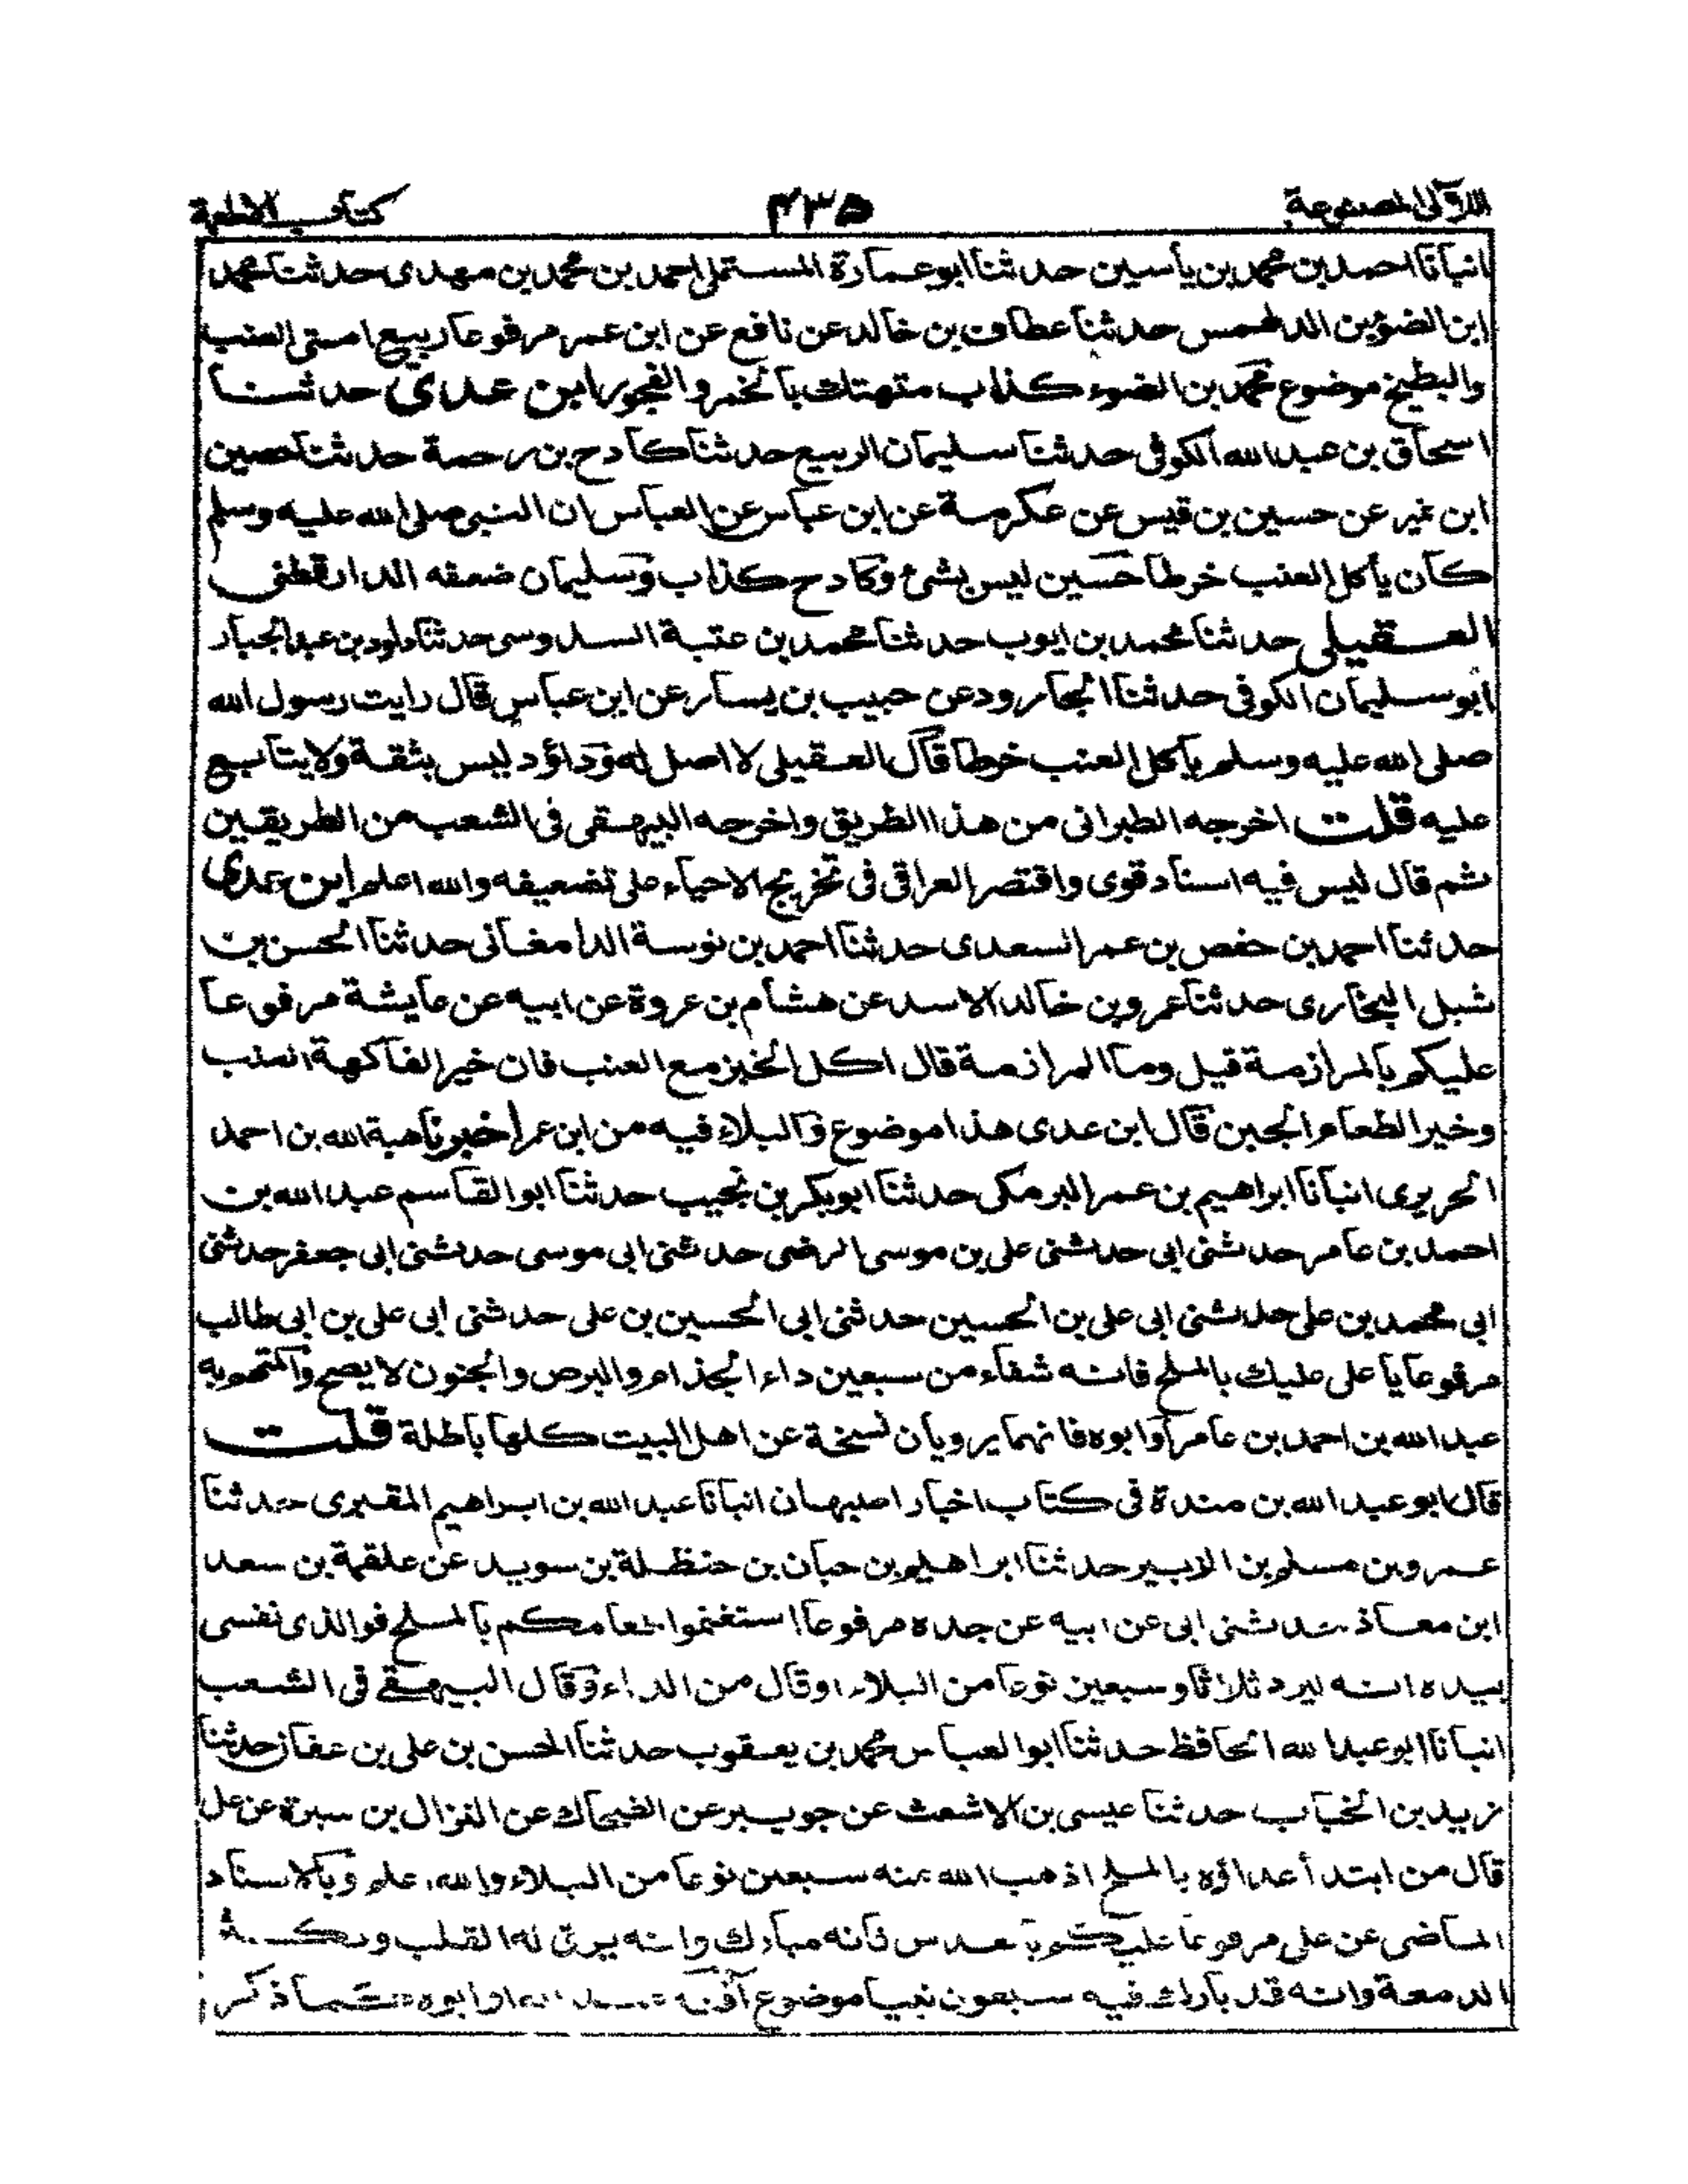 اللآلى المصنوعة
٤٣٥
كتاب الاطعمة
انبأنا احمد بن محمد بن ياسين حدثنا ابو عمارة المستملى احمد بن محمد بن مهدى حدثنا محمد
ابن الضوء بن الدلهمس حدثنا عطاف بن خالد عن نافع عن ابن عمر مرفوعا ربيع امتى العنب
والبطيخ موضوع محمد بن الضوء كذاب متهتك بالخمر والفجور ابن عدى حدثنا
اسحاق بن عبد الله الكوفى حدثنا سليمان الربيع حدثنا كادح بن رحمة حدثنا حصين
ابن نمير عن حسين بن قيس عن عكرمة عن ابن عباس عن العباس ان النبى صلى الله عليه وسلم
كان يأكل العنب خرطا حسين ليس بشئ وكادح كذاب وسليمان ضعفه الدارقطنى
العقيلى حدثنا محمد بن ايوب حدثنا محمد بن عتبة السدوسى حدثنا داود بن عبد الجبار
ابو سليمان الكوفى حدثنا الجارود عن حبيب بن يسار عن ابن عباس قال رايت رسول الله
صلى الله عليه وسلم يأكل العنب خرطا قال العقيلى لا اصل له وداؤد ليس بثقة ولا يتابع
عليه قلت اخرجه الطبرانى من هذا الطريق واخرجه البيهقى فى الشعب من الطريقين
ثم قال ليس فيه اسناد قوى واقتصر العراقى فى تخريج الاحياء على تضعيفه والله اعلم ابن عدى
حدثنا احمد بن حفص بن عمر السعدى حدثنا احمد بن نوسة الدامغانى حدثنا الحسن بن
شبل البخارى حدثنا عمرو بن خالد الاسد عن هشام بن عروة عن ابيه عن عايشة مرفوعا
عليكم بالمرازمة قيل وما المرازمة قال اكل الخبز مع العنب فان خير الفاكهة العنب
وخير الطعام الجبن قال ابن عدى هذا موضوع والبلاء فيه من ابن عمر اخبرنا هبة الله بن احمد
الحريرى انبأنا ابراهيم بن عمر البرمكى حدثنا ابو بكر بن نجيب حدثنا ابو القاسم عبد الله بن
احمد بن عامر حدثنى ابى حدثنى على بن موسى الرضى حدثنى ابى موسى حدثنى ابى جعفر حدثنى
ابى محمد بن على حدثنى ابى على بن الحسين حدثنى ابى الحسين بن على حدثنى ابى على بن ابى طالب
مرفوعا يا على عليك بالملح فانه شفاء من سبعين داء الجذام والبرص والجنون لا يصح والمتهم به
عبد الله بن احمد بن عامر او ابوه فانهما يرويان نسخة عن اهل البيت كلها باطلة قلت
قال ابو عبد الله بن مندة فى كتاب اخبار اصبهان انبأنا عبد الله بن ابراهيم المقبرى حدثنا
عمرو بن مسلم بن الابير حدثنا ابراهيم بن حبان بن حنظلة بن سويد عن علقمة بن سعد
ابن معاذ حدثنى ابى عن ابيه عن جده مرفوعا استغنموا طعامكم بالملح فوالذى نفسى
بيده انه ليرد ثلاثا وسبعين نوعا من البلاء او قال من الداء وقال البيهقى فى الشعب
انبأنا ابو عبد الله الحافظ حدثنا ابو العباس محمد بن يعقوب حدثنا الحسن بن على بن عفان حدثنا
زيد بن الخباب حدثنا عيسى بن الاشعث عن جويبر عن الضحاك عن النزال بن سبرة عن على
قال من ابتدأ غداؤه بالملح اذهب الله عنه سبعين نوعا من البلاء والله اعلم وبالاسناد
الماضى عن على مرفوعا عليكم بالعدس فانه مبارك وانه يرق له القلب ويكثر
الدمعة وانه قد بارك فيه سبعون نبيا موضوع آفته عبد الله او ابوه كما ذكر